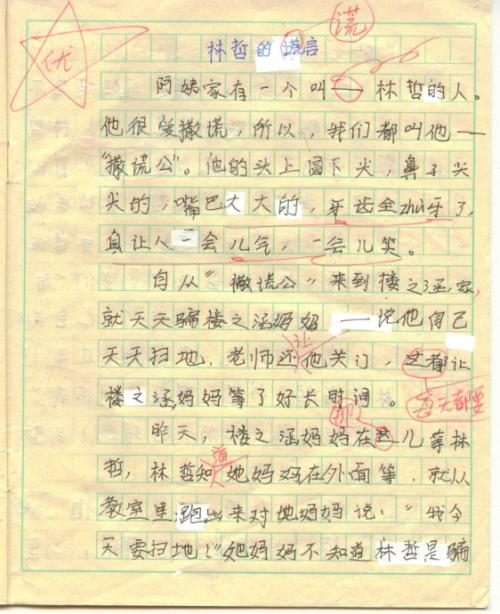 谎
优
林哲的谎言
阿姨家有一个叫——林哲的人。
他很爱撒谎，所以，我们都叫他—
“撒谎公”。他的头上圆下尖，鼻子尖
尖的，嘴巴大大的，牙齿全zhù牙了，
真让人一会儿气，一会儿笑。
自从“撒谎公”来到楼之涵家，
就天天骗楼之涵妈妈——说他自己
让
天天扫地，老师还他关门，这都让
每天都要
楼之涵妈妈等了好长时间。
那
昨天，楼之涵妈妈在这儿等林
道
哲，林哲知她妈妈在外面等，就从
教室里跑出来对她妈妈说：“我今
天要扫地！”她妈妈不知道林哲是骗